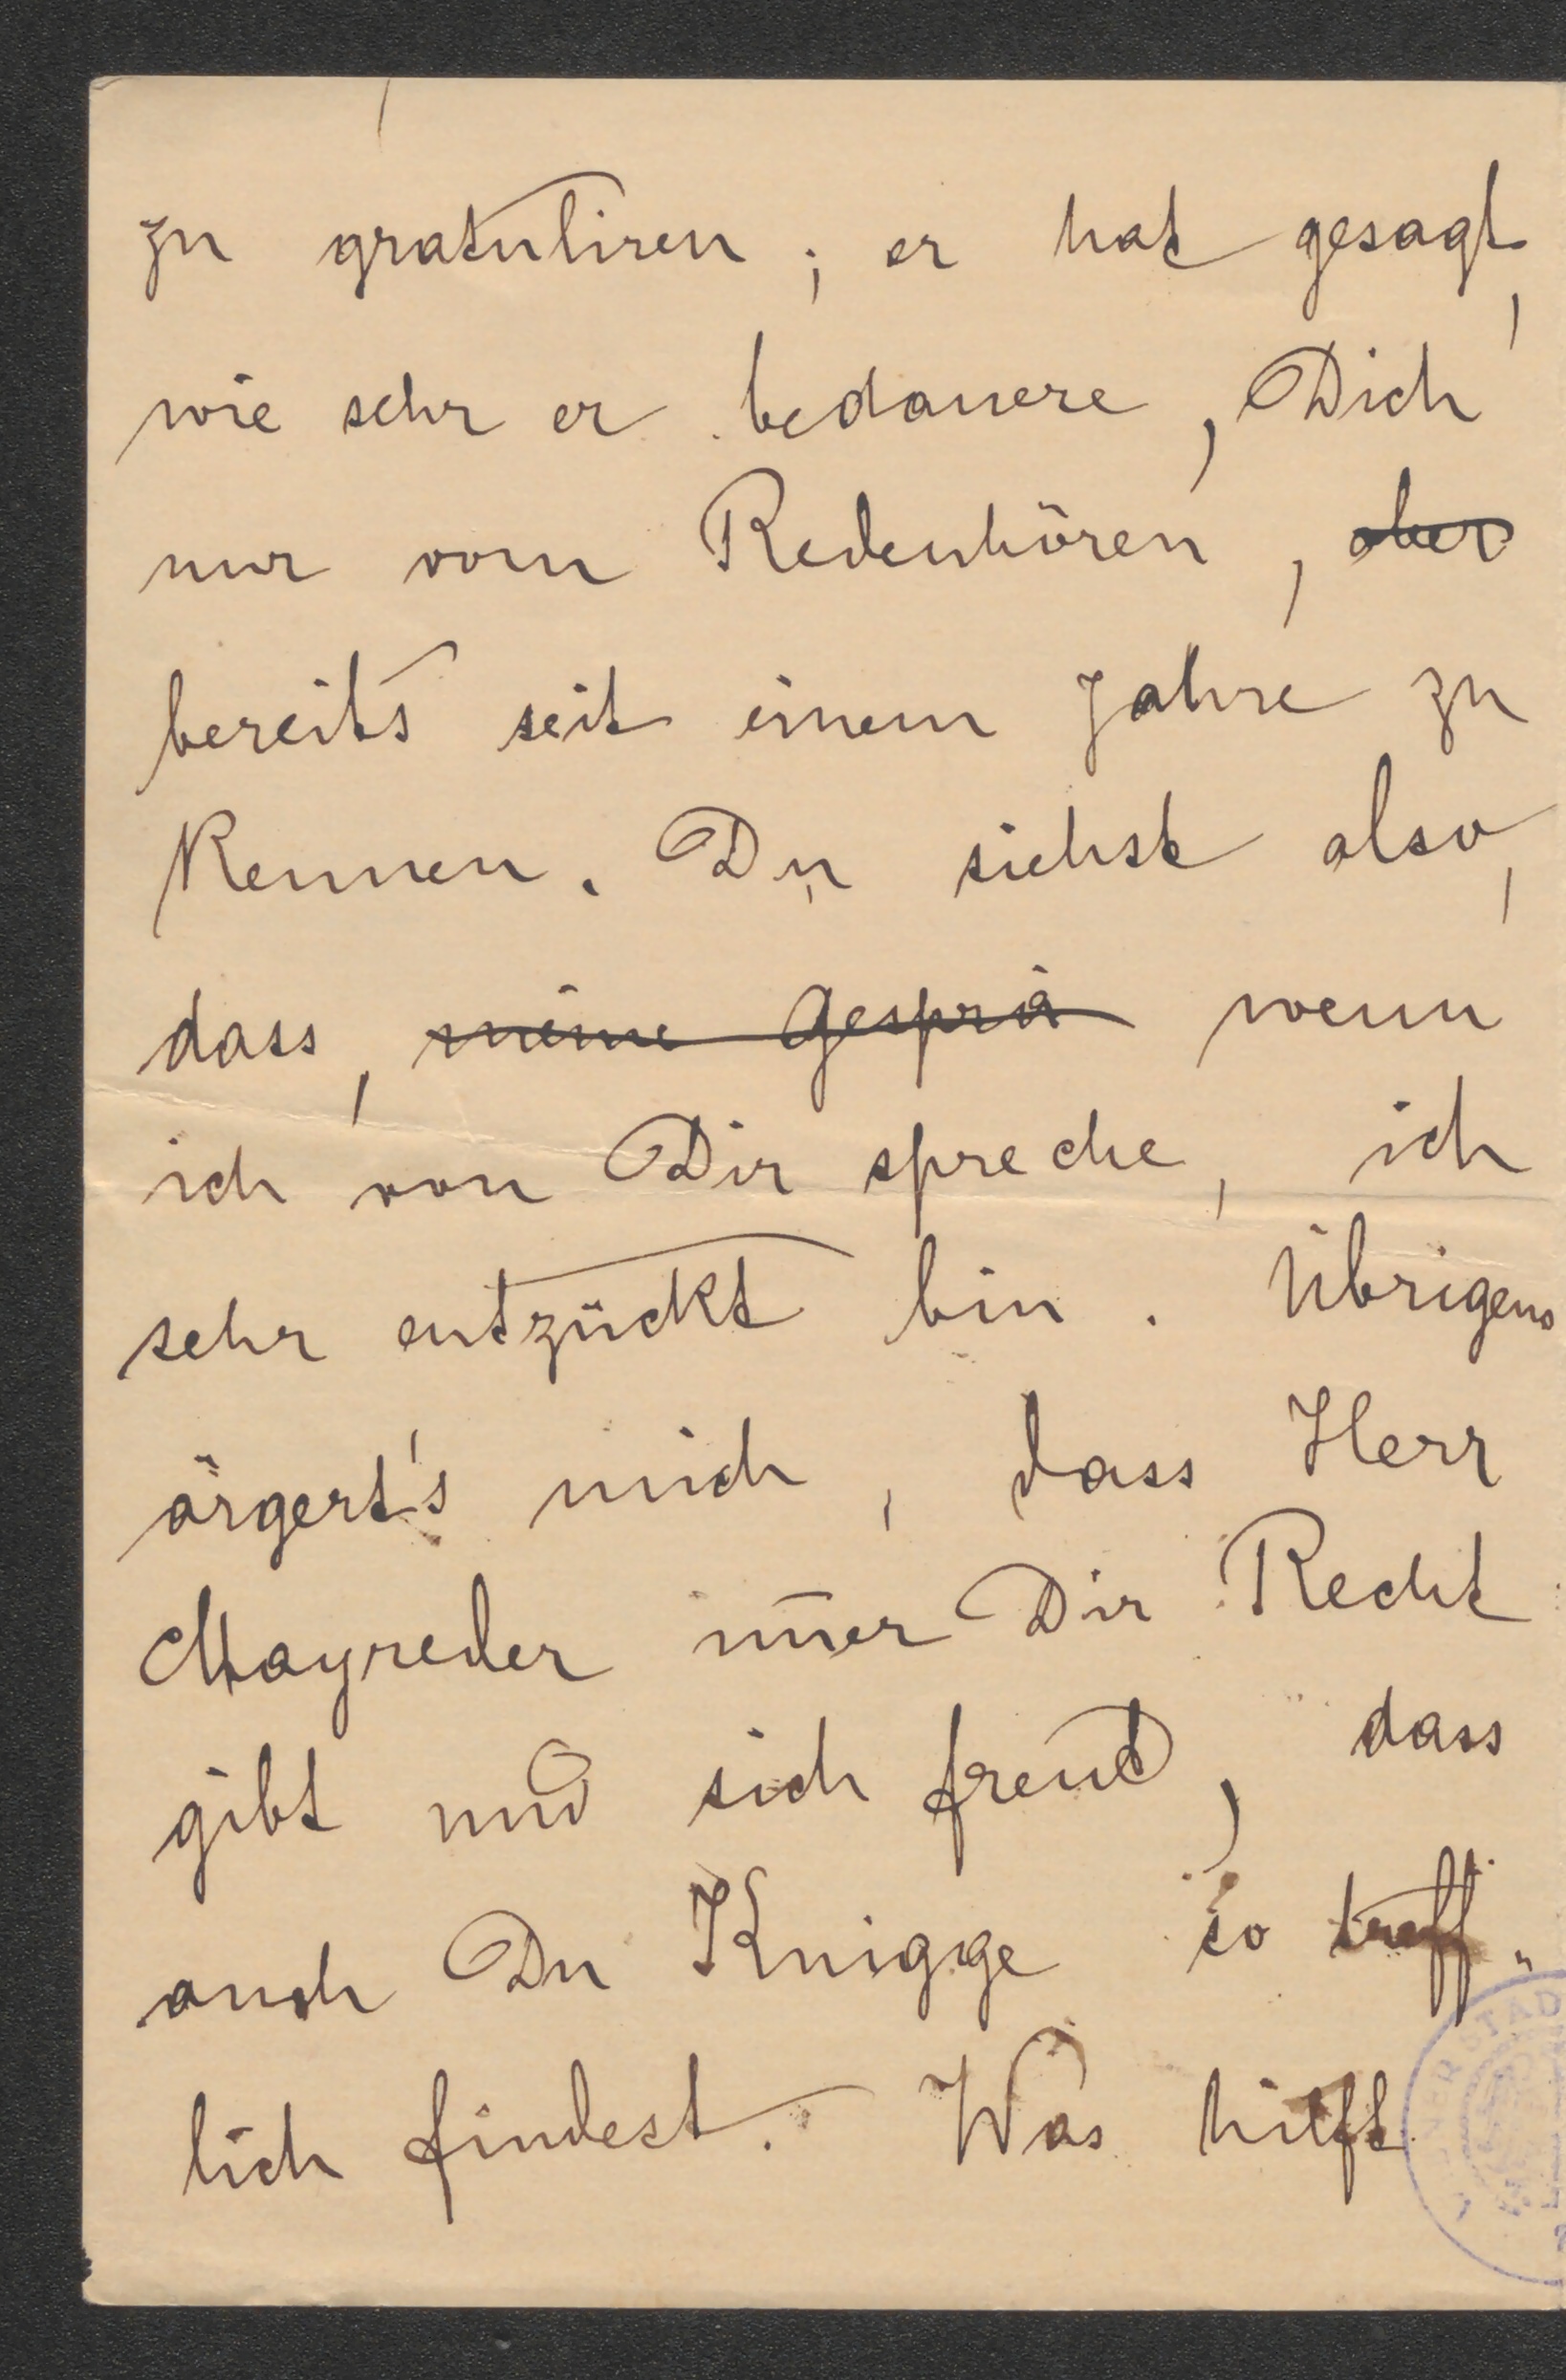 zu gratuliren ; er hat gesagt,
wie sehr er bedauere, Dich
nur vom Redenhören, aber
bereits seit einem Jahre zu
kennen. Du siehst also,
dass, meine Gesprä wenn
ich von Dir spreche, ich
sehr entzückt bin. Übrigens
ärgert's mich, dass Herr
Mayreder im̅er Dir Recht
gibt und sich freut, dass
auch Du Knigge so treff„
lich findest. Was hilft